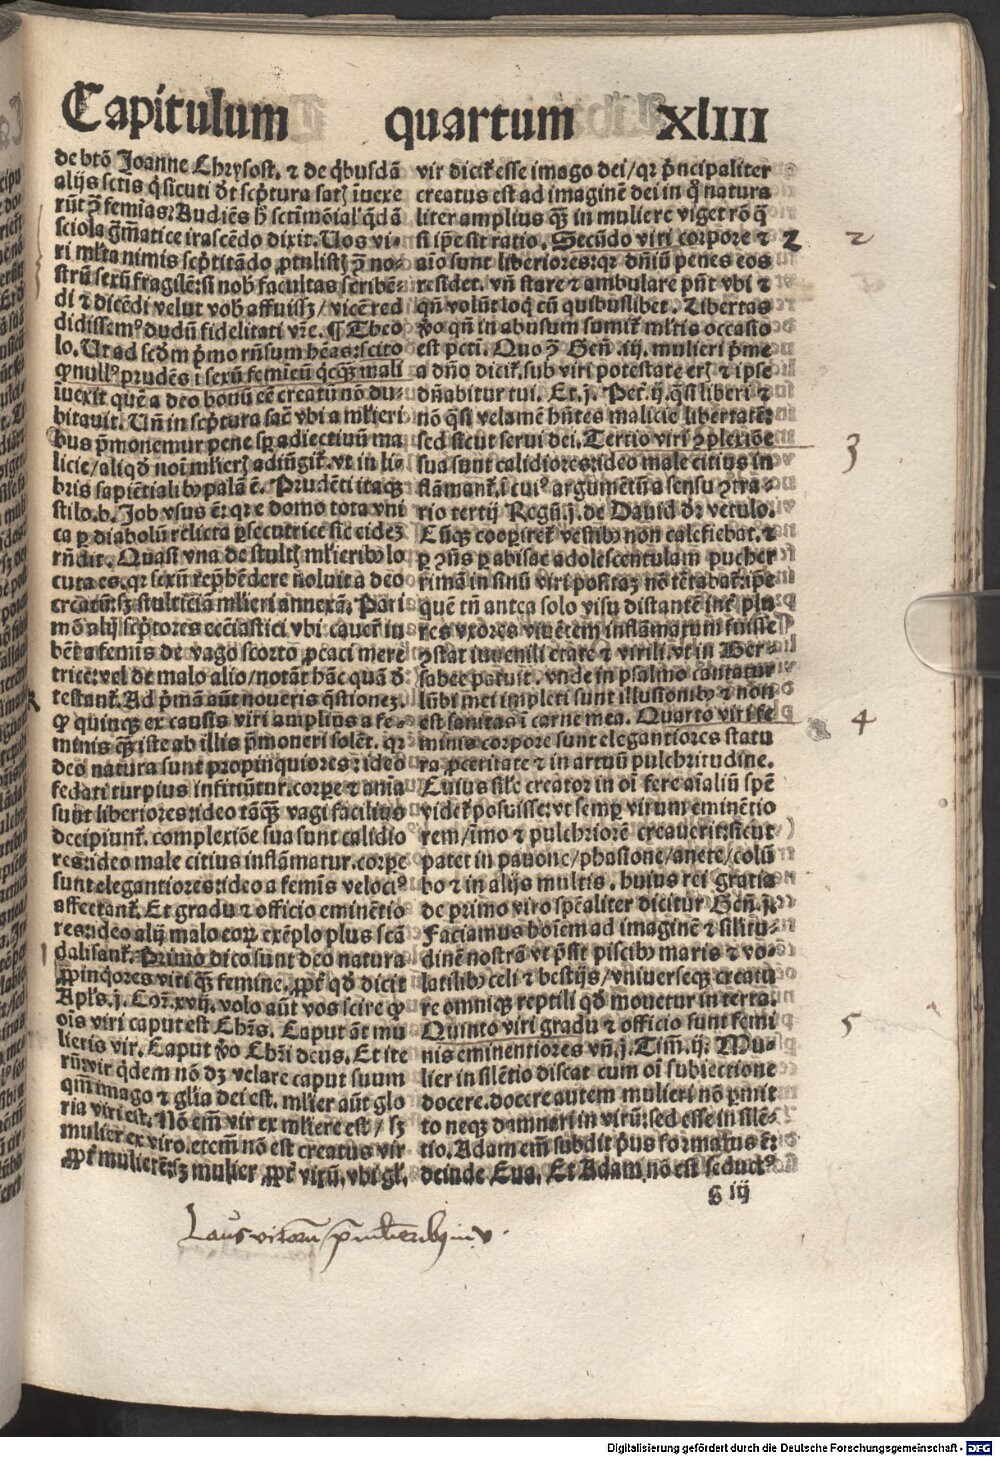 Capitulum quartum XLIII
de btō Joanne Chrysost. ⁊ de q̇busdā
alijs sctīs q̇ sicuti dr̄t scp̄tura satꝫ īuexe
rūt ꝯ̄ femias: Audiēs h̄ sctm̄ mōial' q̇dā
sciola gr̄matice irascēdo dixit. Uos vi-
ri ml'ta nimis scp̄titādo ꝓtulistꝫ ꝯ̄ no-
strū sexū fragilē: si nob̄ facultas scribē-
di ⁊ dicēdi velut vob̄ affuissꝫ / vicē red
didissemꝰ dudū fidelitati vr̄e. ¶ Theo
lo. Ut ad scd̄m p̄mo rn̄sum hēas: scito
ꝙ nullꝰ prudēs ī sexū femīeū q̇cqꝫ mali
īuexit quē a deo bonū eē creatū nō du-
bitauit. Un̄ in scp̄tura sac̄ vbi a ml'ieri
bus p̄monemur pene sꝑ adiectiuū ma
licie / aliqḋ noī ml'ierꝫ adiūgit᷑. vt in li-
bris sapiētialibꝰ palā ē. Prudēti itaqꝫ
stilo .b. Job vsus ē: qr e domo tota vni
ca ꝑ diabolū relicta ꝑsecutrice sic eideꝫ
rn̄dit. Quasi vna de stultꝫ ml'ieribꝰ lo
cuta es. qr sexū rep̄hēdere noluit a deo
creatū: sꝫ stulticiā ml'ieri annexā. Pari
mō alij scp̄tores eccl'iastici vbi cauer̄t iu
bēt a femis de vago scorto ꝓcaci mere
trice: vel de malo alio / notāt hāc quā dr̄
testant᷑. Ad p̄mā aūt noueris q̄stioneꝫ.
ꝙ quinqꝫ ex causis viri amplius a fe-
minis qꝫ iste ab illis p̄moneri solēt. qr
deo natura sunt propinquiores: ideo
fedati turpius infitiūtur. corpe ⁊ aīma
sunt liberiores: ideo tāqꝫ vagi facilius
decipiunt᷑. complexiōe sua sunt calidio
res: ideo male citius inflāmātur. corpe
sunt elegantiores: ideo a feminis velociꝰ
affectant᷑. Et gradu ⁊ officio eminētio
res: ideo alij malo eorꝝ exēplo plus scā
dalisant᷑. Primo dico sunt deo natura
ꝓpinq̇ores viri qꝫ femine. ꝓpt᷑ qḋ dicit
Apl's .j. Cor. xvij. volo aūt vos scire ꝙ
oīs viri caput est Chr̄s. Caput āt mu
lieris vir. Caput v̊o Chr̄i deus. Et ite
rū: vir q̇dem nō dꝫ velare caput suum
qm̄ imago ⁊ gl'ia dei est. ml'ier aūt glo
ria viri est. Nō em̄ vir ex ml'iere est / sꝫ
mulier ex viro. etem̄ nō est creatus vir
ꝓpt᷑ mulierē: sꝫ mulier ꝓpt᷑ virū. vbi gl'.
vir dicit᷑ esse imago dei / qr p̄ncipaliter
creatus est ad imaginē dei in q̄ natura
liter amplius qꝫ in muliere viget rō q̄
si ip̄e sit ratio. Secūdo viri corpore ⁊ 2
aīo sunt liberiores: qr dn̄iū penes eos
residet. vn̄ stare ⁊ ambulare pn̄t vbi ⁊
qn̄ volūt loq̇ cū quibuslibet. Libertas
v̊o qn̄ in abusum sumit᷑ ml'tis occasio
est pcti. Quoꝫ Gen̄ .iij. mulieri prime
a dn̄o dicit᷑. sub viri potestate eris ⁊ ipse
dn̄abitur tui. Et .j. Pet᷑. ij. q̄si liberi ⁊
nō q̄si velamē hn̄tes malicie libertatē:
sed sicut serui dei. Tertio viri ꝯplexiōe
sua sunt calidiores: ideo male citius in
flāmant᷑. ī cuiꝰ argumētū a sensu ꝯtra-
rio tertij Regū .j. de Dauid dr̄ vetulo.
Cūqꝫ cooꝑiret᷑ vestibꝰ non calefiebat. ⁊
ꝑ ꝯn̄s ꝑ abisac adolescentulam pulcher
rimā in sinū viri positaꝫ nō tētabat᷑: ip̄e
quē tn̄ antea solo visu distantē int᷑ plu
res vxores viuētem inflāmatum fuisse
ꝯstat iuuenili etate ⁊ virili. vt in Ber-
sabee patuit. vnde in psalmo cantatur
lūbi mei impleti sunt illusionibꝰ ⁊ non
est sanitas ī carne mea. Quarto viri fe
minis corpore sunt elegantiores statu
ra proceritate ⁊ in artuū pulchritudine.
Cuius sil'r creator in oī fere aīaliū spē
videt᷑ posuisse: vt semꝑ virum eminētio
rem / īmo ⁊ pulchriorē creauerit: sicut
patet in pauone / phasione / anete / colū
bo ⁊ in alijs multis. huius rei gratia
de primo viro spēaliter dicitur Gen̄ .j.
Faciamus hoīem ad imaginē ⁊ silitu-
dinē nostrā vt p̄sit piscibꝰ maris ⁊ vo-
latilibꝰ celi ⁊ bestijs / vniuerseqꝫ creatu
re omniqꝫ reptili qḋ mouetur in terra.
Quinto viri gradu ⁊ officio sunt femi
nis eminentiores vn̄ .j. Tim̄. ij. Mu-
lier in silētio discat cum oī subiectione
docere. docere autem mulieri nō ꝑmit
to neqꝫ damnari in virū: sed esse in silē-
tio. Adam em̄ subdit pꝰus formatus ē:
deinde Eua. Et Adam nō est seductꝰ
g iij
2
3
4
5
Laus virorum p̄ mulieribꝰ in v.